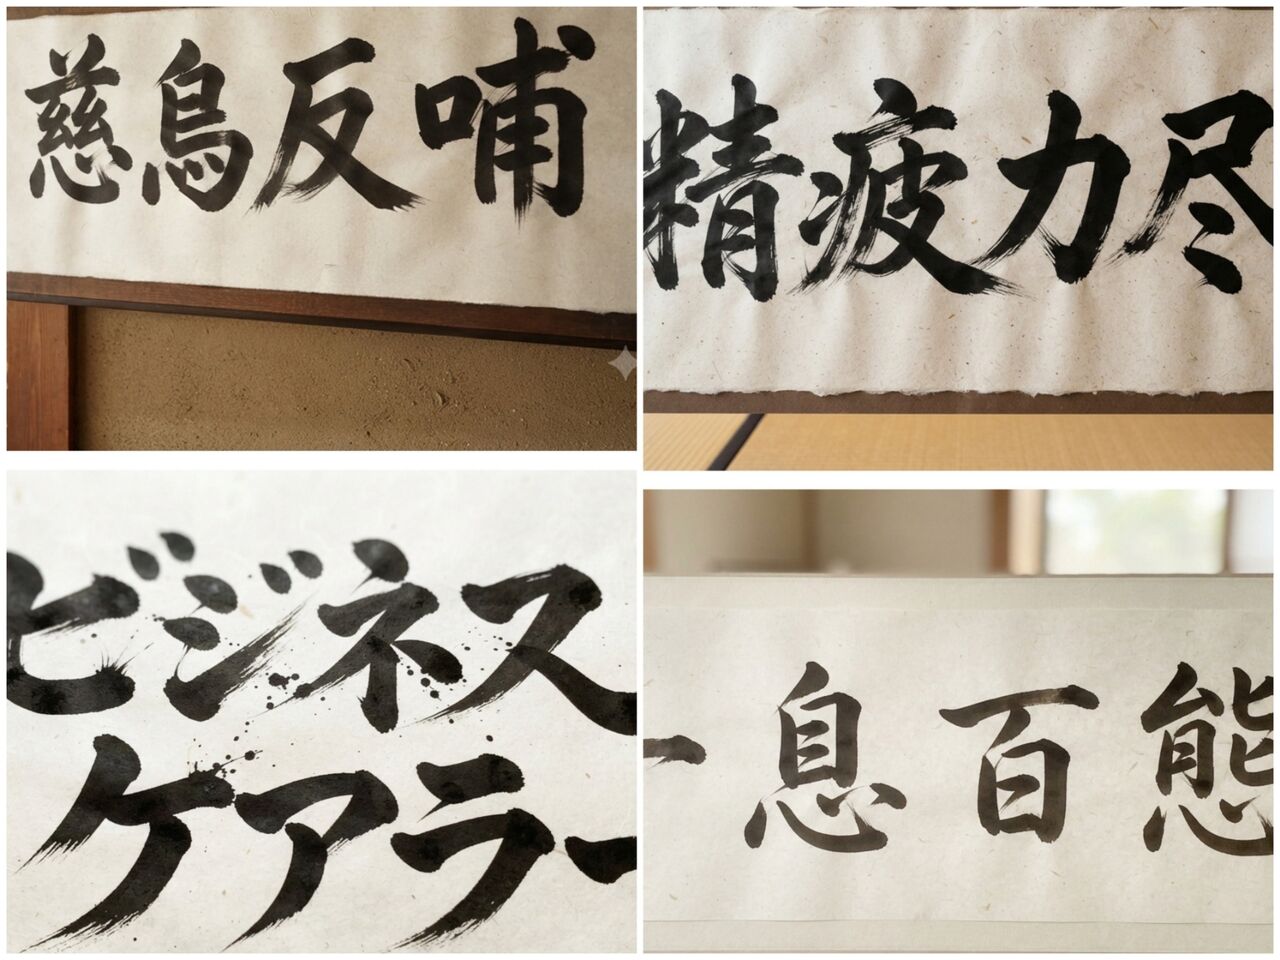 慈鳥反哺
精疲力尽
ビジネス
ケアラー
一息百態